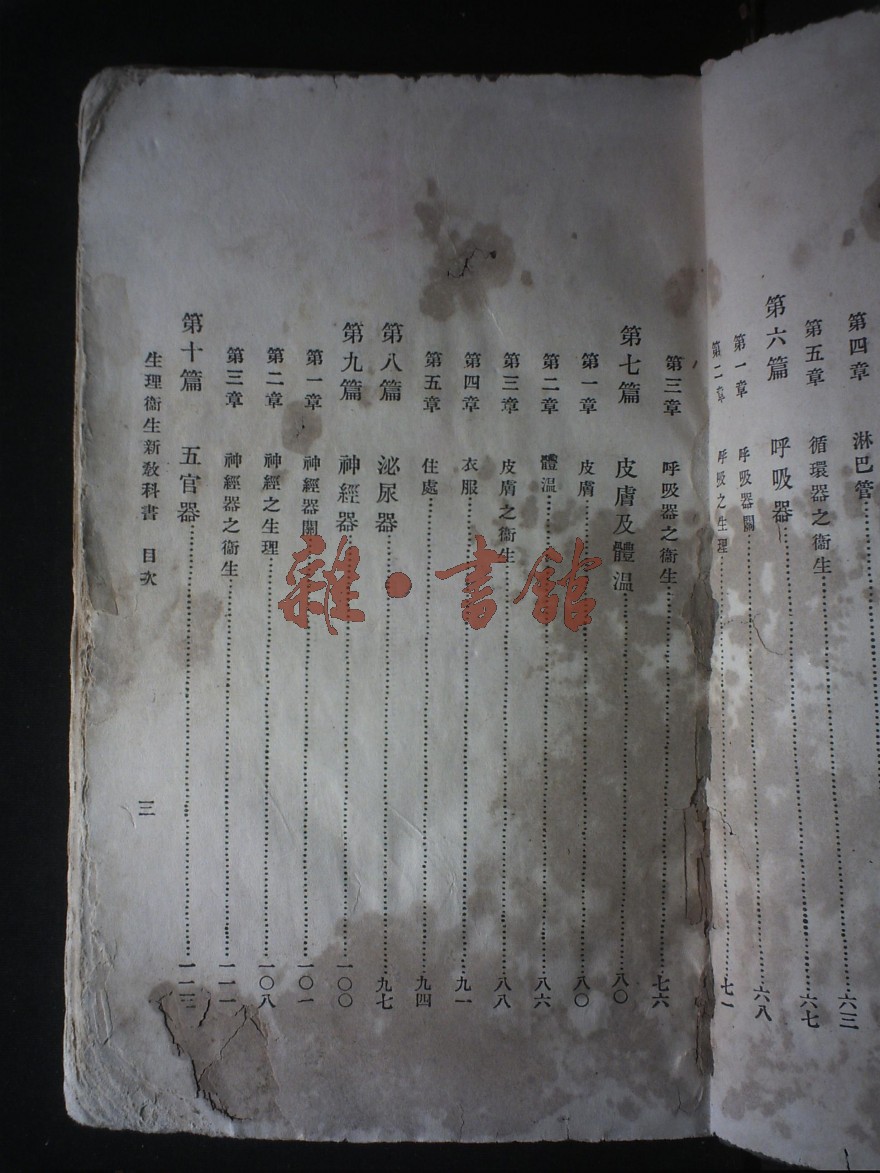 第四章 淋巴管 六三
第五章 循環器之衞生 六七
第六篇 呼吸器
第一章 呼吸器關 六八
第二章 呼吸之生理 七一
第三章 呼吸器之衞生 七六
第七篇 皮膚及體溫 八〇
第一章 皮膚 八〇
第二章 體溫 八六
第三章 皮膚之衞生 八八
第四章 衣服 九一
第五章 住處 九四
第八篇 泌尿器 九七
第九篇 神經器 一〇〇
第一章 神經器關 一〇一
第二章 神經之生理 一〇八
第三章 神經器之衞生 一一一
第十篇 五官器
生理衞生新敎科書 目次 三
雜·書館